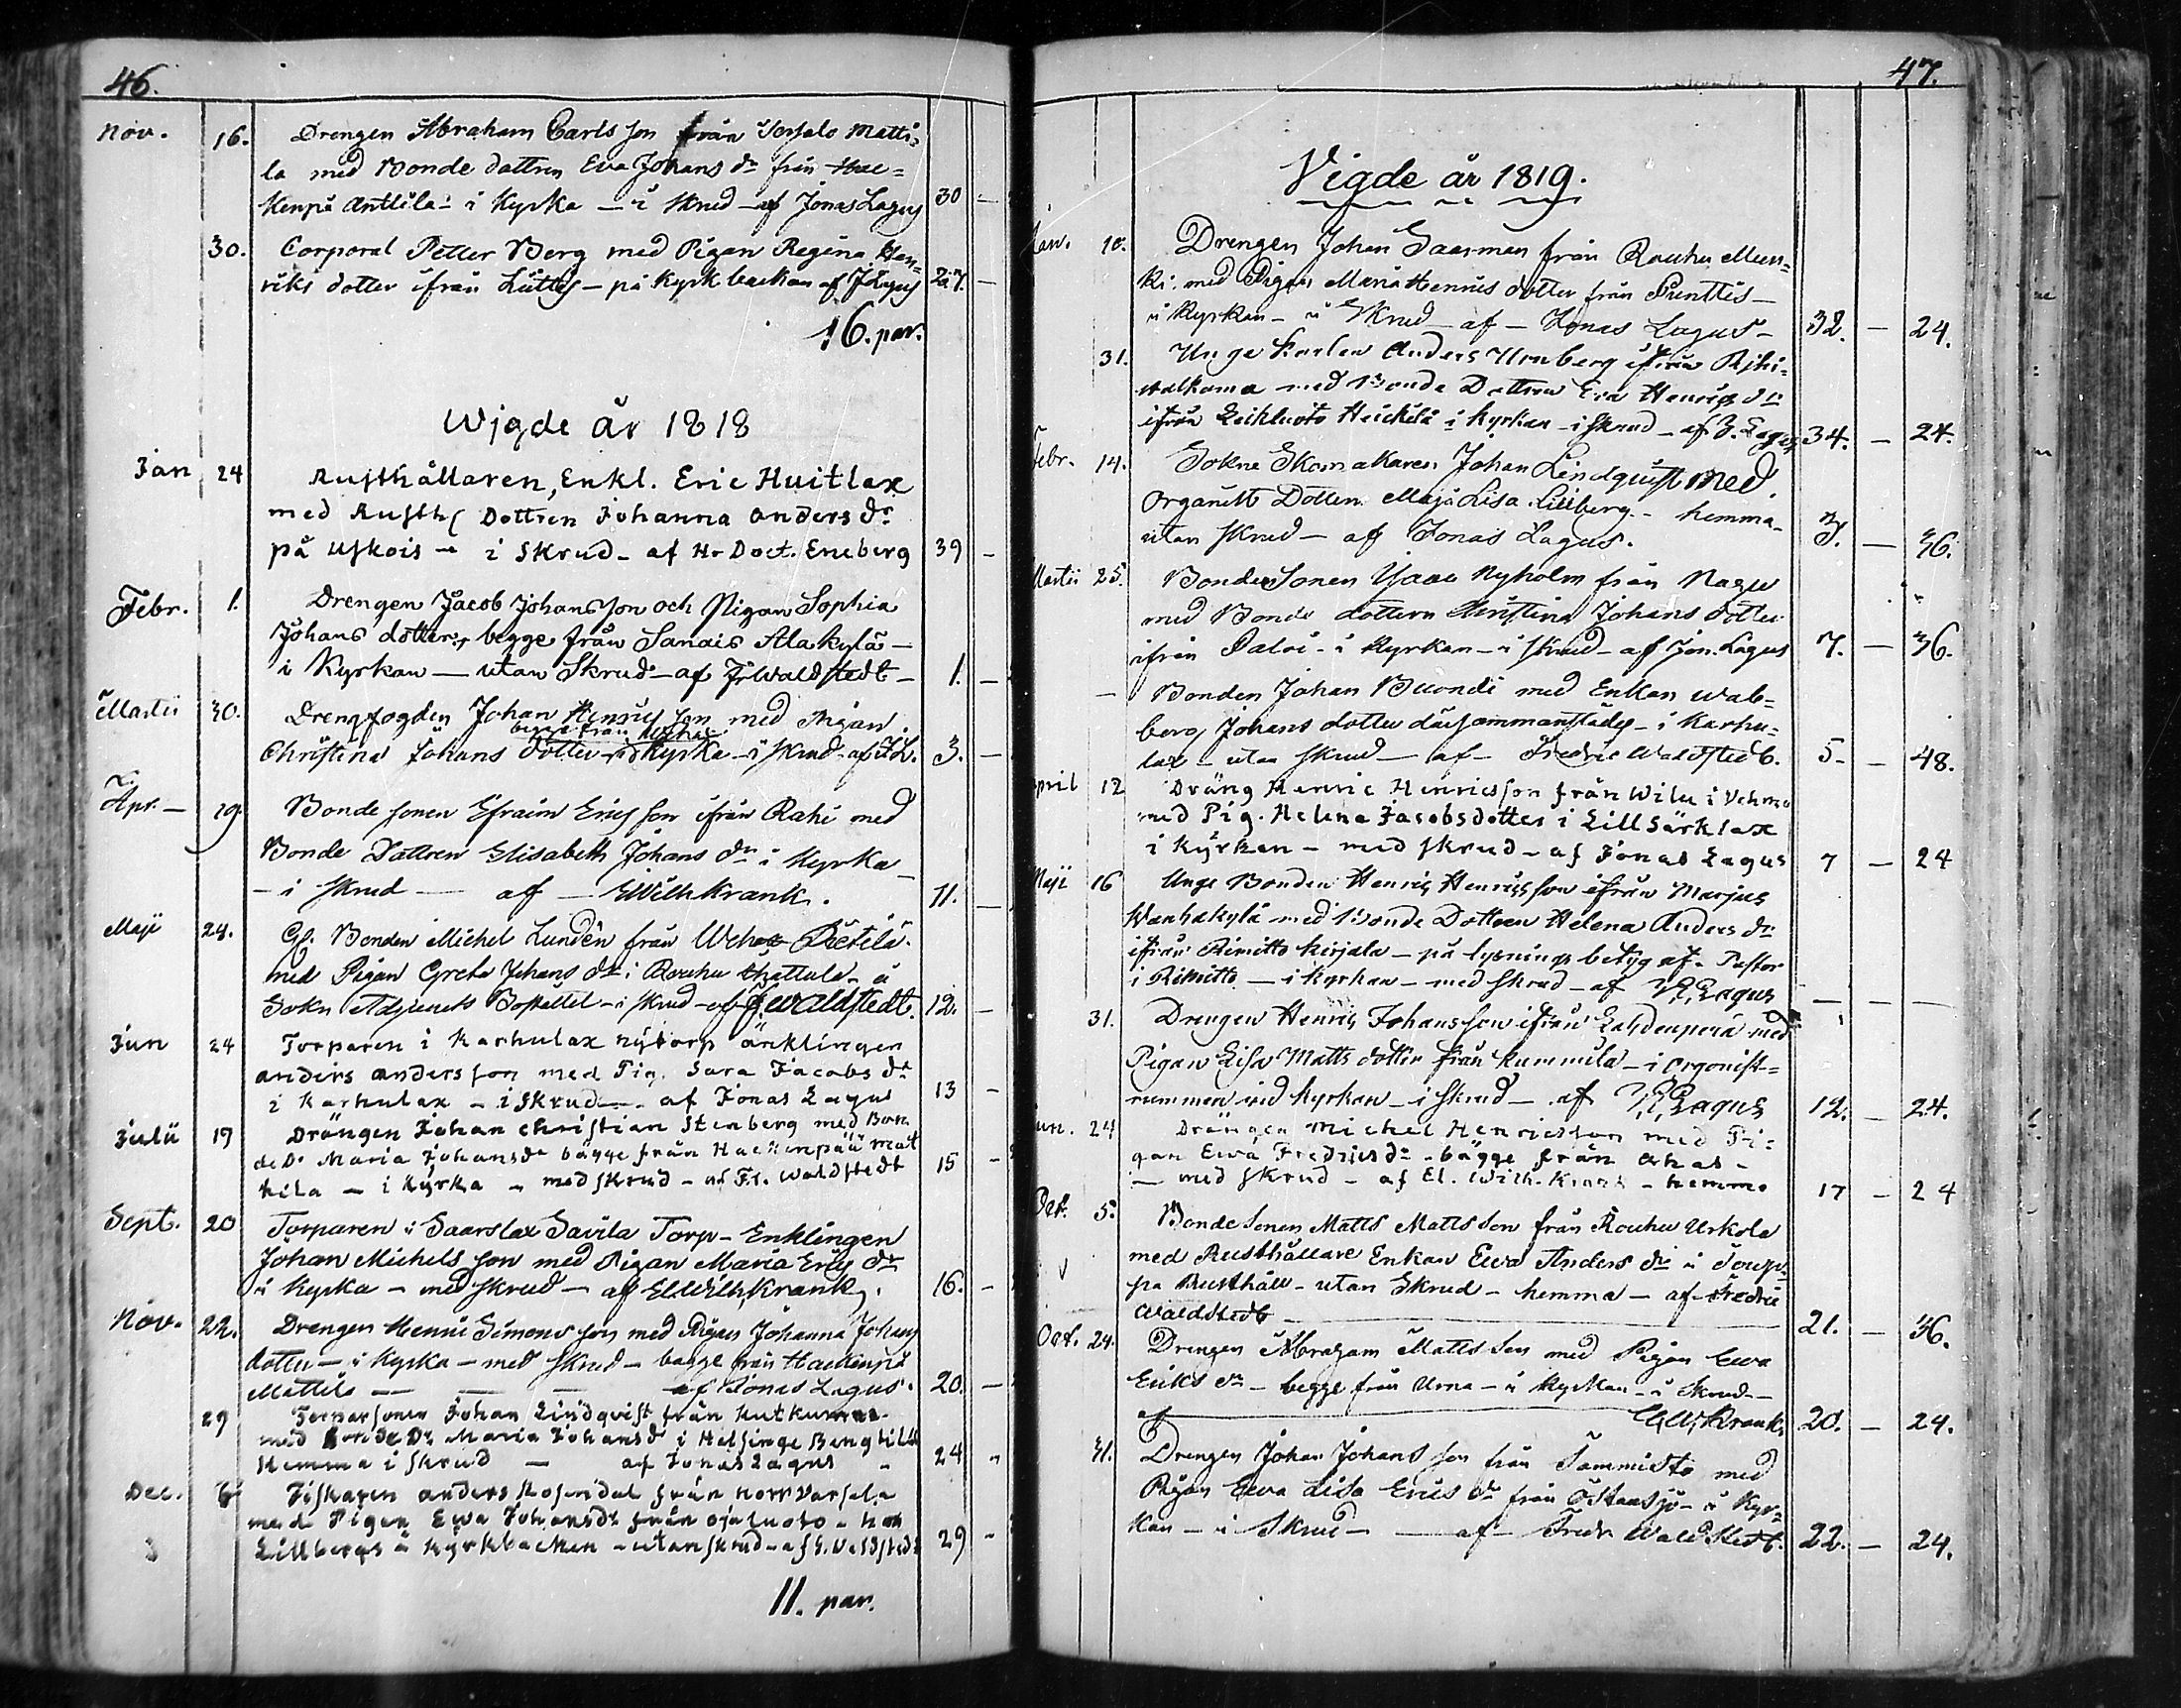 46.
Nov. 16. Drengen Abraham Carls son från Matti=
la med Bonde dottren Eva Johans dr från Hae=
kenpä Anttila - i Kyrka - i skrud - af Jonas Lagus 30 -
30. Corporal Petter Berg med Pigan Regina Hen=
riks dotter ifrån Lüttis - på Kyrkbackan af J Lagus 27. -
16. par.
Wigde år 1818
Jan 24 Rusthållaren, Enkl. Eric Huitlax
med Rusth Dottren Johanna Anders dr
på Uskois - i skrud - af Hr Doct. Eneberg 39 -
Febr. 1. Drengen Jacob Johansson och Pigan Sophia
Johans dotter, begge från Sanais Alakylä -
i Kyrkan - utan Skrud - af Fr Waldstedt - 1. -
Martii 30. Drengfogden Johan Henrics son med Pigan
begge från
Christina Johans dotter Kyrka - i skrud - af J.L. 3. -
Apr. - 19. Bonde sonen Efraim Erics son ifrån Rahi med
Bonde Dottren Elisabeth Johans dr i Kyrka -
- i skrud - af - E Wilh Krank. 11. -
Maji 24. Gl. Bonden Michel Lundén från Wehas Pietilä
med Pigan Greta Johans dr i Rouhu - å
Sokn Adjuncts Bostellet - i skrud - af F. Waldstedt. 12. -
Jun 24 Torparen i Karhulax nytorp änklingen
Anders Andersson med Pig. Sara Jacobs dr
i Karhulax - i skrud - af Jonas Lagus 13 -
Julii 19 Drängen Johan Christian Stenberg med Bon
de Dr Maria Johansdr bägge från Haekenpää Mat
tila - i Kyrka - med skrud - af Fr. Waldstedt 15 -
Sept. 20 Torparen i Saarslax Savila Torp - Enklingen
Johan Michels son med Pigan Maria Erics dr
i Kyrka - med skrud - af El Wilh, Krank. 16. -
Nov. 22. Drengen Henric Simons son med Pigan Johanna Johans
dotter - i Kyrka - med skrud - begge från Haekenpä
Mattila - - - af Jonas Lagus. 20. -
29 Torparsonen Johan Lindqvist från Kutkumaa
med Bonde Dr Maria Johansdr i Helsinge Bengtilä
Hemma i skrud - af Jonas Lagus - 24 -
Dec. 6 Fiskaren Anders Rosendal från Norrvarsala
med Pigan Ewa Johansdr från Ojaluoto - hos
Lillbergs å Kyrkbacken - utan skrud - af F. Waldstedt 29 -
11. par.
47.
Vigde år 1819.
Jan. 10. Drengen Johan Saarman från Rouhu Mun=
ki med Pigan Maria Henrics dotter från Punttis -
i Kyrkan - i Skrud - af - Jonas Lagus - 32. - 24.
31. Unge Karlen Anders Urnberg ifrån Rihi=
walkama med Bonde Dottren Eva Henrics dr
ifrån Leikluoto Heickilä i Kyrkan - i skrud - af J. Lagus 34. - 24.
Febr. 14. Sokne Skomakaren Johan Lindquist med
Organists Dottren Maja Lisa Lillberg - hemma -
utan skrud - af Jonas Lagus. 3. - 36.
Martii 25. Bonde Sonen Isaac Nyholm från Nagu
med Bonde dottern Christina Johans dotter
ifrån Paloi - i Kyrkan - i skrud - af Jon. Lagus 7. - 36.
- Bonden Johan Buondi med Enkan Wal=
berg Johans dotter därsammanstädes - i Karhu=
lax - utan skrud - af - Fredric Waldstedt. 5 - 48.
April 12 Dräng Henric Henricsson från Wilu i Vehmo
med Pig. Helena Jacobsdotter i Lill Särklax
i Kyrkan - med skrud - af Jonas Lagus 7 - 24
Maji 16 Unge Bonden Henric Henricsson ifrån Marjus
Wanhakylä med Bonde Dottren Helena Anders dr
ifrån Rimitto Kirjala - på lysnings betyg af Pastor
i Rimitto - i Kyrkan - med skrud - af Lagus - - -
31. Drengen Henric Johansson ifrån Lahdenperä med
Pigan Lisa Matts dotter från Kummila - i Orgonist=
rummen vid Kyrkan - i skrud - af Lagus 12. - 24.
Jun. 24 Drängen Michel Henricsson med Pi=
gan Ewa Fredricsdr - bägge från Ahas -
- med skrud - af El. Wilh. Krank - hemma 17 - 24
Oct. 5. Bonde Sonen Matts Matts Son från Rouhu Urkola
med Rusthållare Enkan Ewa Anders dr i
pa Rusthåll - utan Skrud - hemma - af Fredric
Waldstedt - 21. - 36.
Oct. 24. Drengen Abraham Matts Son med Pigan Ewa
Eriks dr - begge från Urna - i Kyrkan - i Skrud -
af E W, Krank, 20. - 24.
31. Drengen Johan Johans son från Sammisto med
Pigan Ewa Lisa Erics dr från Östansjö - i Kyr=
kan - i Skrud - af - Fredr Waldstedt. 22. - 24.